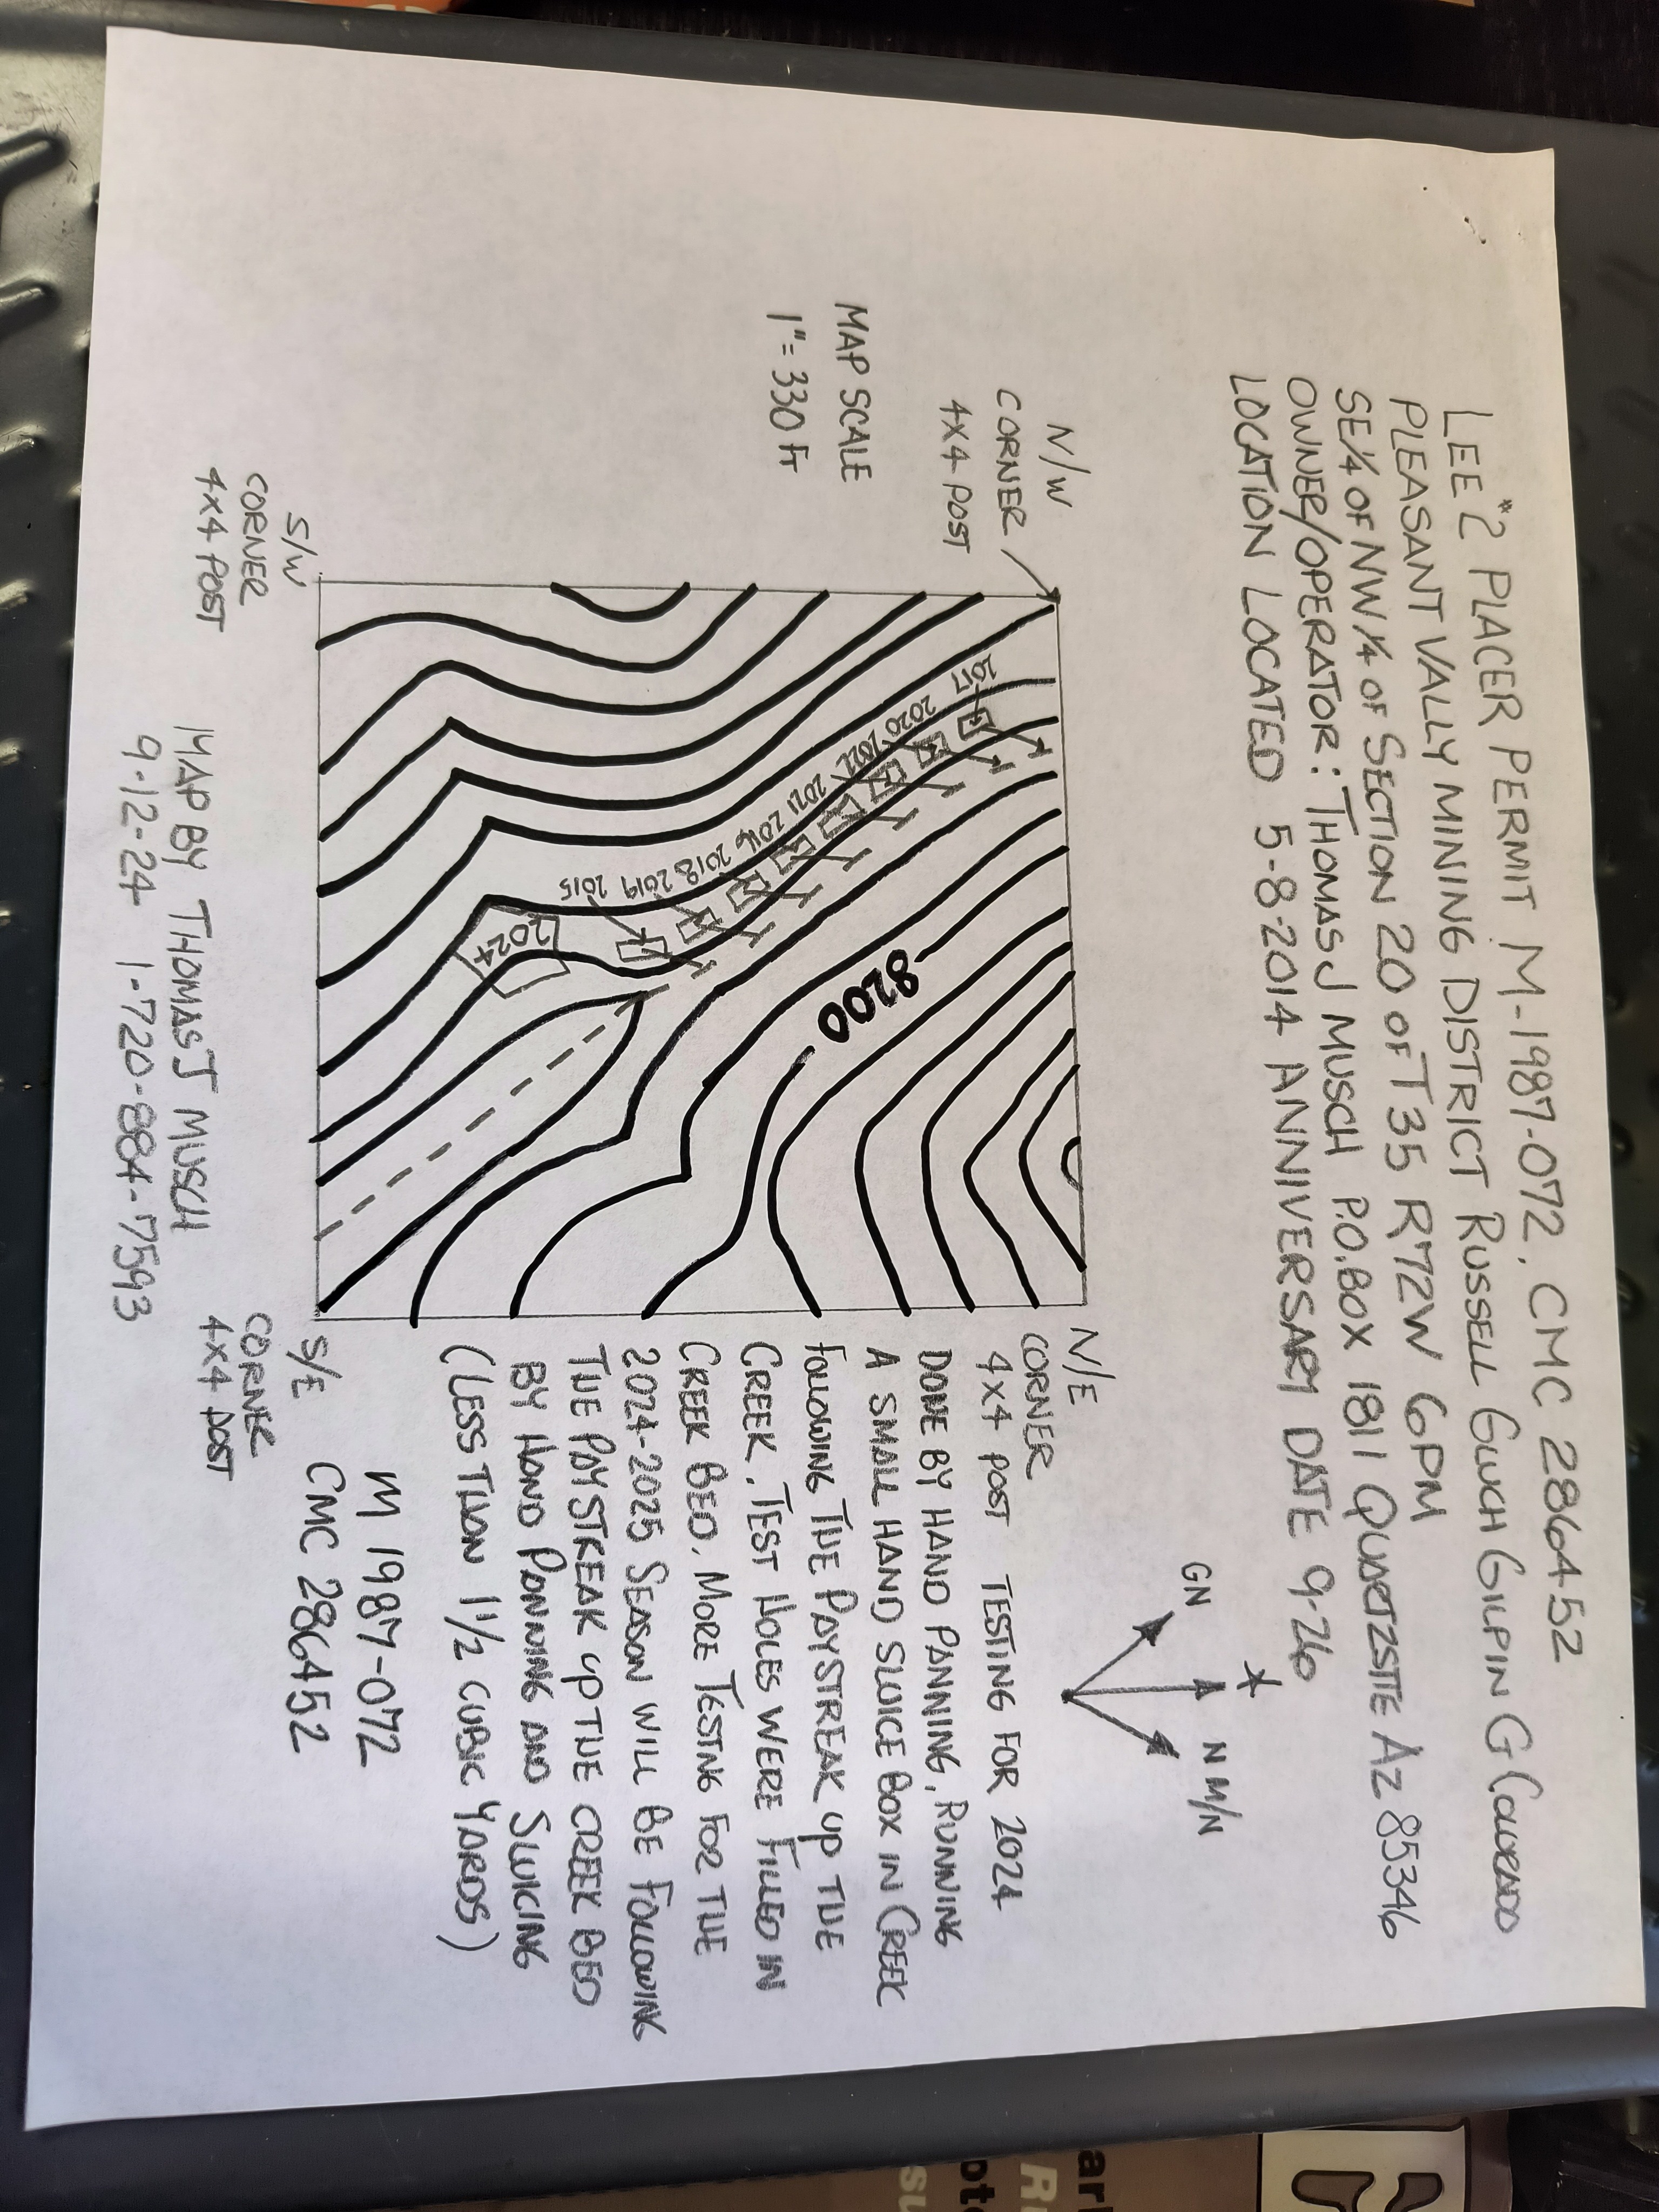 LEE #2 PLACER PERMIT M-1987-072, CMC 286452
PLEASANT VALLY MINING DISTRICT RUSSELL GULCH GILPIN G COLORADO
SE 1/4 OF NW 1/4 OF SECTION 20 OF T35 R72W 6PM
OWNER/OPERATOR: THOMAS J MUSCH P.O.BOX 1811 QUARTZSTIE AZ 85346
LOCATION LOCATED 5-8-2014 ANNIVERSARY DATE 9-26
N/W
CORNER
4X4 POST
MAP SCALE
1" = 330 FT
GN
N M/N
N/E
CORNER
4X4 POST
TESTING FOR 2024
DONE BY HAND PANNING, RUNNING
A SMALL HAND SLUICE BOX IN CREEK
FOLLOWING THE PAYSTREAK UP THE
CREEK, TEST HOLES WERE FILLED IN
CREEK BED, MORE TESTNG FOR THE
2024-2025 SEASON WILL BE FOLLOWING
THE PAYSTREAK UP THE CREEK BED
BY HAND PANNING AND SLUICING
(LESS THAN 1 1/2 CUBIC YARDS)
2017
2020
2022
2021
2016
2018
2019
2015
2024
8200
S/W
CORNER
4X4 POST
S/E
CORNER
4X4 POST
M 1987-072
CMC 286452
MAP BY THOMAS J MUSCH
9-12-24 1-720-884-7593